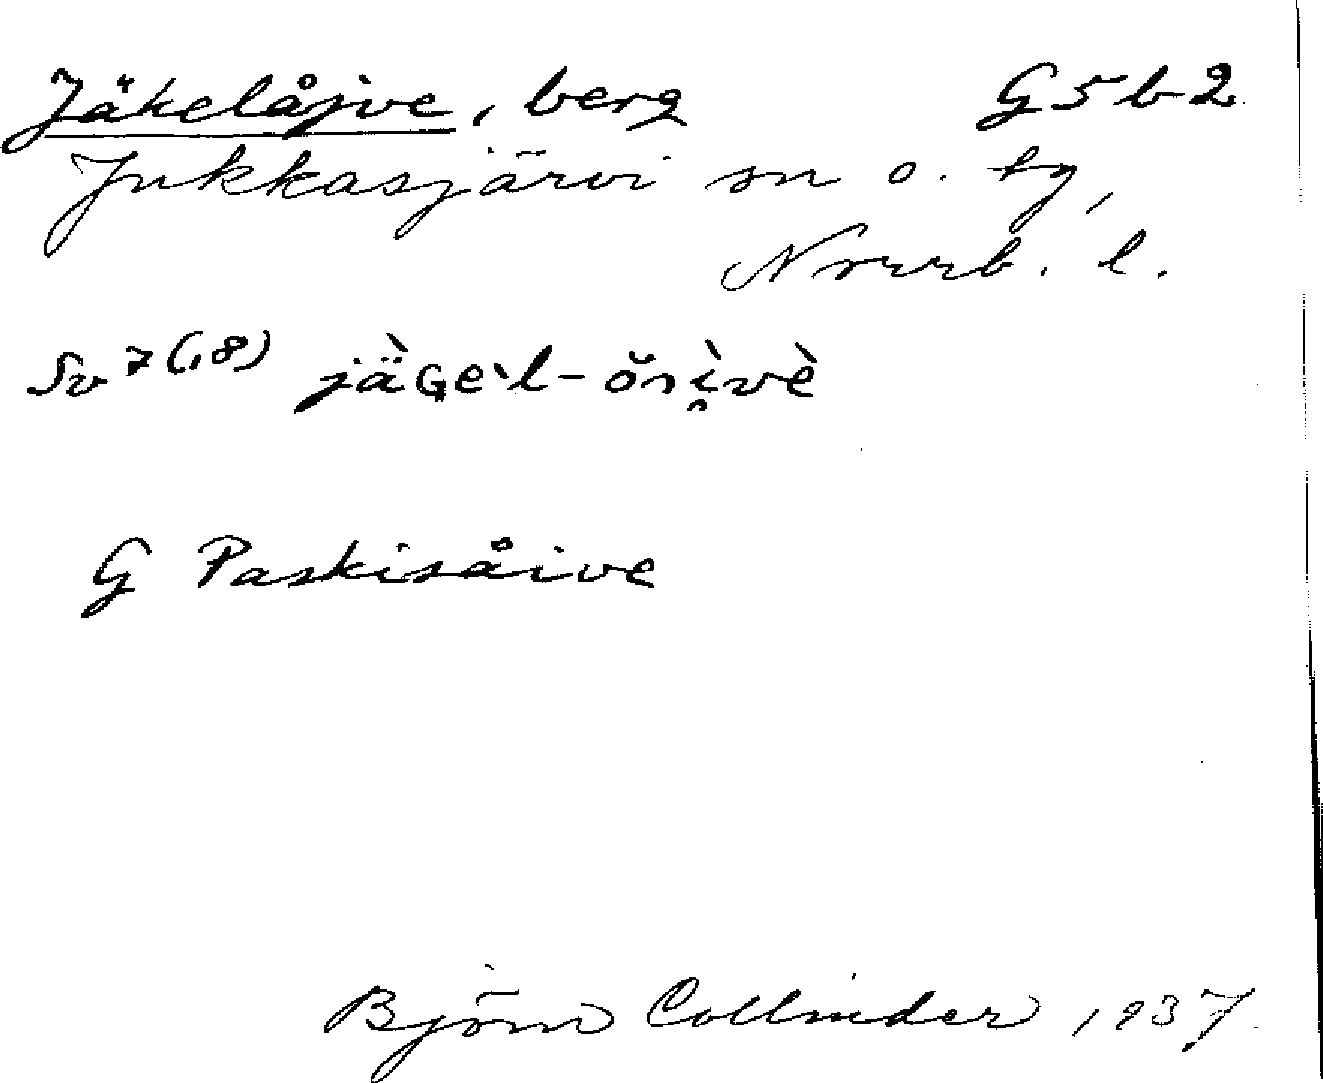 Jäkelåjve, berg G5b2
Jukkasjärvi sn o. tg,
Norrb. l.
Sv 7(,8) jä̀Ge`l-ŏı̯̀vè
G Paskisåive
Björn Collinder 1937